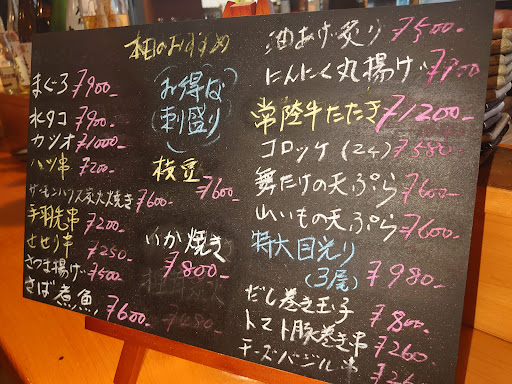 本日のおすすめ
まぐろ ¥900-
水タコ ¥900-
カツオ ¥1000-
ハツ串 ¥200-
サーモンハラス炭火焼き ¥600-
手羽先串 ¥200-
せせり串 ¥250-
さつま揚げ ¥500-
さば煮魚 ¥600-
お得な
刺盛り
枝豆
¥600-
いか焼き
¥800-
油あげ炙り ¥500-
にんにく丸揚げ ¥700-
常陸牛たたき ¥1200-
コロッケ(2ヶ) ¥580-
舞たけの天ぷら ¥600-
山いもの天ぷら ¥600-
特大目光り
(3尾) ¥980-
だし巻き玉子 ¥800-
トマト豚巻き串 ¥260-
チーズバジル串